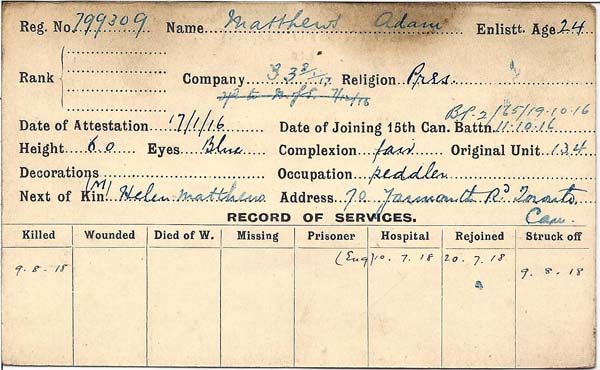 Reg. No. 799309 Name Matthews Adam Enlistt. Age 24
Rank
Company 3 Religion Pres.
Date of Attestation 17/1/16 Date of Joining 15th Can. Battn. 11-10-16
Height 6.0 Eyes Blue Complexion fair Original Unit 134
Decorations Occupation peddler
Next of Kin (M) Helen Matthews Address 70 Yarmouth Rd Toronto,
Can.
RECORD OF SERVICES.
Killed Wounded Died of W. Missing Prisoner Hospital Rejoined Struck off
9.8.18 (Eng) 10.7.18 20.7.18 9.8.18